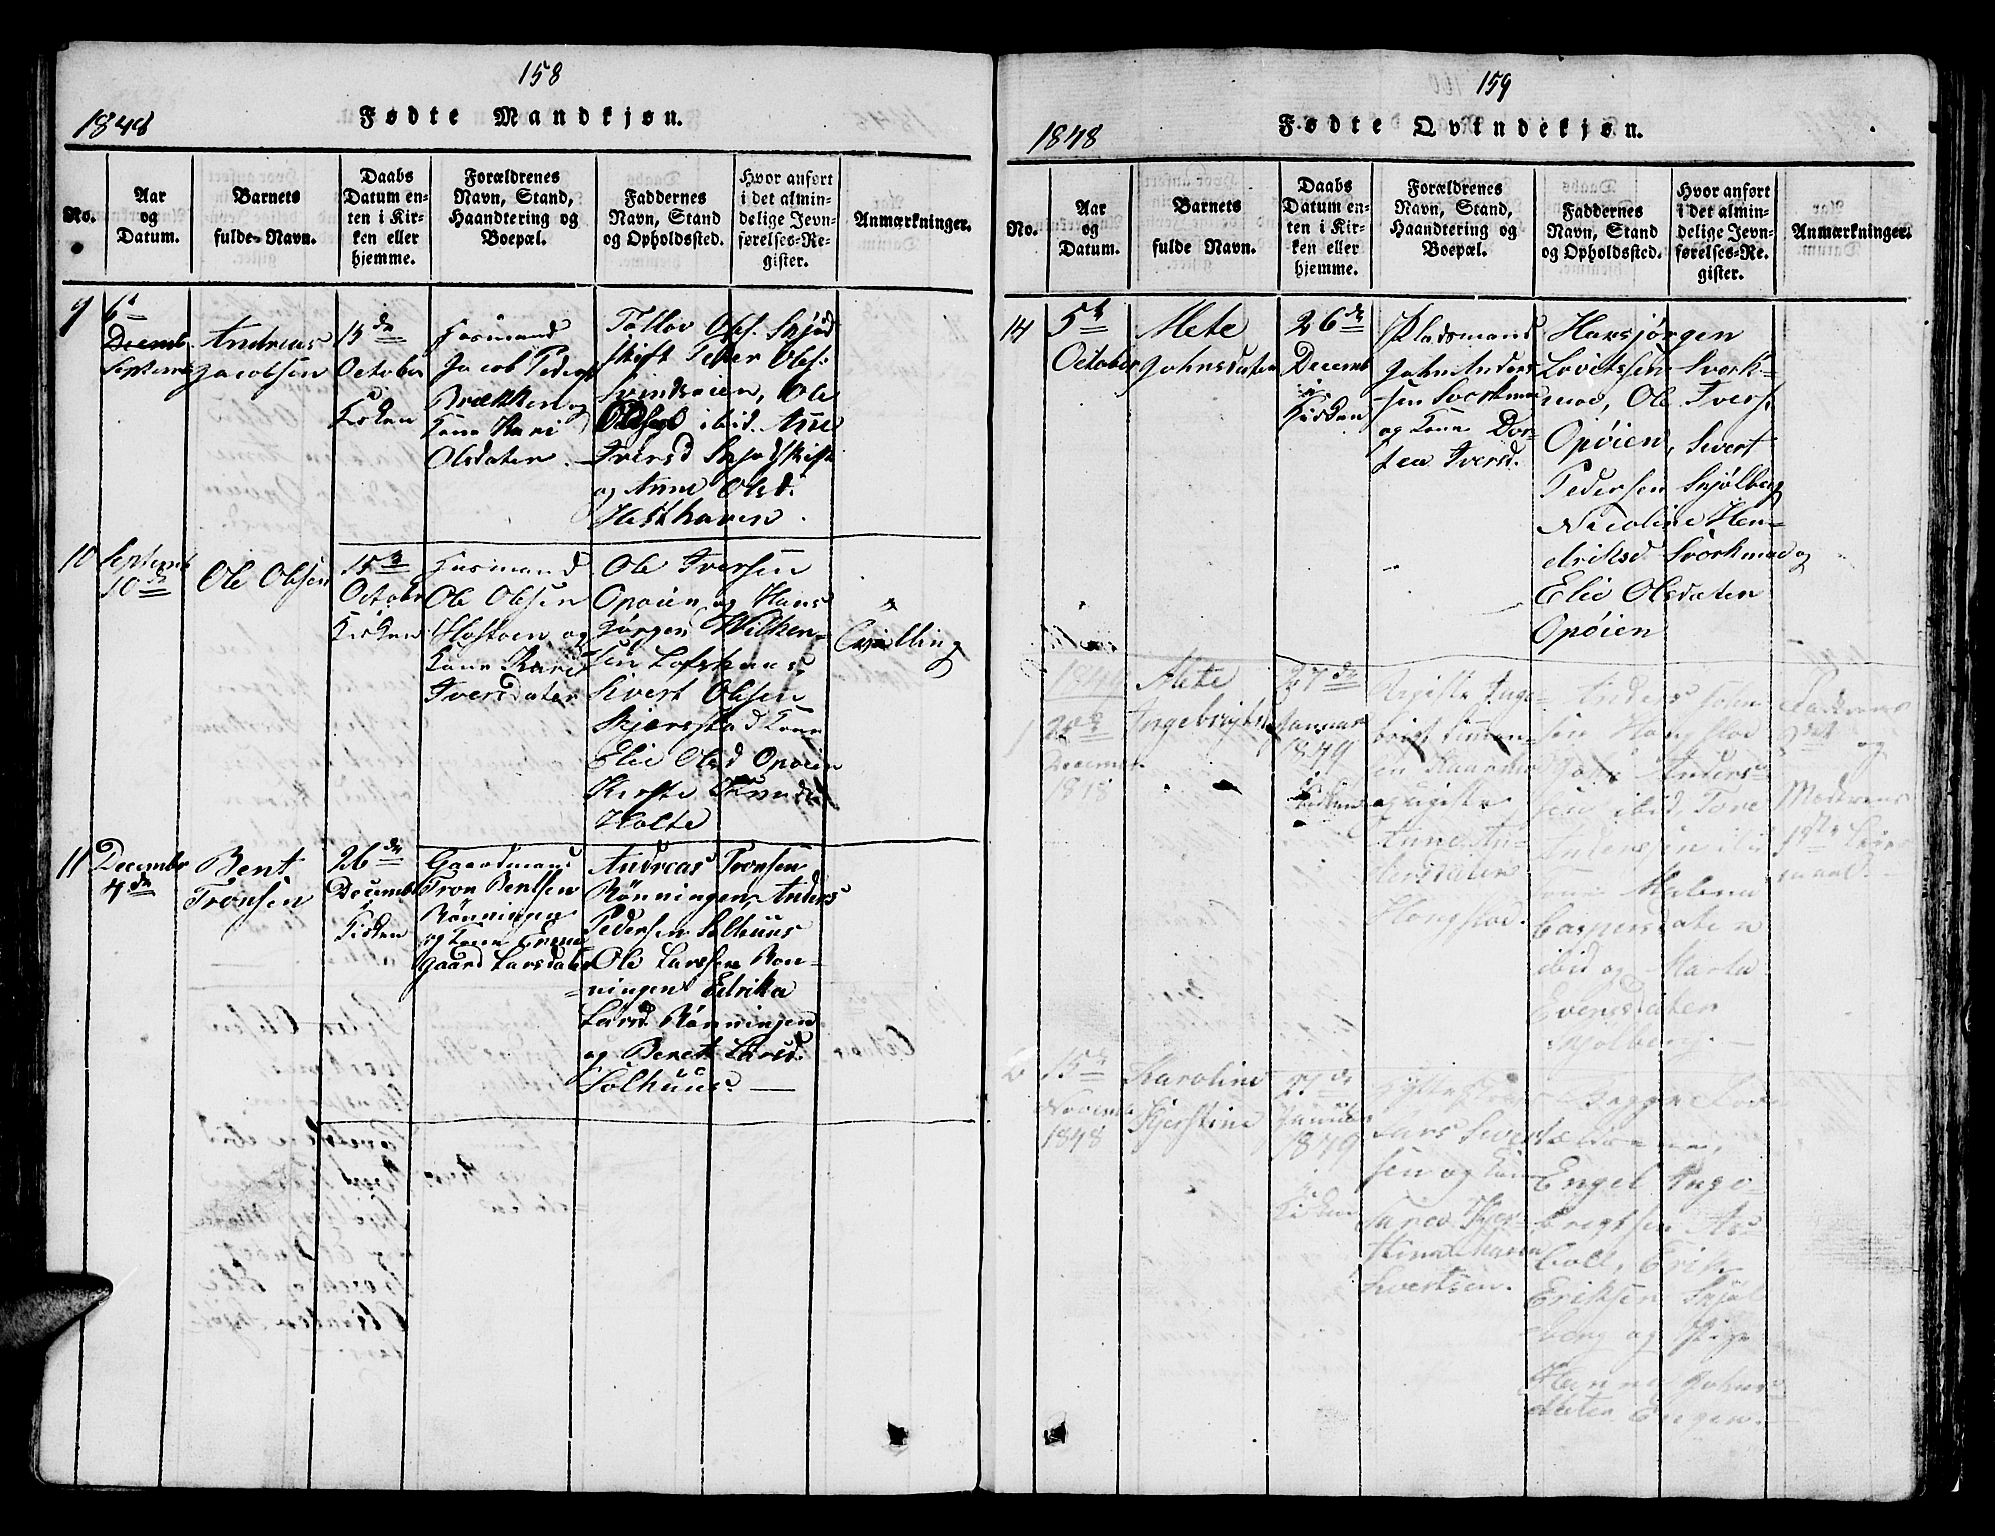 158
1848
Fødte Mandkjøn.
No.
Aar
og
Datum.
Barnets
fulde Navn.
Daabs
Datum en-
ten i Kir-
ken eller
hjemme.
Forældrenes
Navn, Stand,
Haandtering og
Boepæl.
Faddernes
Navn, Stand
og Opholdssted.
Hvor anført
i det almin-
delige Jevn-
førelses-Re-
gister.
Anmærkninger.
9
6te
Decemb
Septemb
Andreas
Jacobsen
October
Kirken
Huusmand
Jacob Peders
Brækken og
Kone Kari
Olsdatter
Tollov Ols. Skjød
skift Peter Ols.
Svindsøien, Ole
ibid. Anne
Iversd Skjødskift
og Anne Olsd.
Hesthaven.
10
Septemb
10de
Ole Olsen
15de
October
Kirken
Huusmand
Ole Olsen
Hostoen og
Kone Kari
Iversdater
Ole Iversen
Opøien og Hans
Jørgen Wilken-
sen
Sivert Olsen
Kone
Elie Olsd Opøien
Kirsti Knuds
Holte
Tvilling
11
Decembr
4de
Bent
Tronsen
26de
Decemb
i
Kirken
Gaardmand
Tron Bentsen
Rønningen
og Kone Erme-
gaard Larsdater
Andreas Tronsen
Rønningen, Anders
Pedersen Solhuus
Ole Larssen Røn-
ningen Edrika
Larsd. Rønningen
og Berett Larsd.
Solhuus.
159
1848
Fødte Qvindekjøn.
No.
Aar
og
Datum.
Barnets
fulde Navn.
Daabs
Datum en-
ten i Kir-
ken eller
hjemme.
Forældrenes
Navn, Stand,
Haandtering og
Boepæl.
Faddernes
Navn, Stand
og Opholdssted.
Hvor anført
i det almin-
delige Jevn-
førelses-Re-
gister.
Anmærkninger.
14
5te
October
Mete
Johnsdater
26de
Decemb
i
Kirken
Pladsmand
John Anders
sen Svorkmo
og Kone Dor-
tea Iversd.
Hansjørgen
Lovitssen Svork-
moe, Ole Ivers.
Opøien, Sivert
Pedersen Skjølberg
Nicoline Hen-
driksd Svorkmoe og
Elie Olsdaten
Opøien
1849
1
28de
Decemb
1848
Mete
Ingebrigtsd
27de
Januar
1849
i
Kirken
Inge-
brigt Simon-
sen
og Pigen
Anne An-
dersdater
Hongslo.
Anders John
sen Hongsloe
John Anders-
sen ibid, Tore
Andersen ibid
Kone Malena
Caspersdaten
ibid og Marta
Evensdater
Skjølberg.
Faderens
2det
og
Moderens
1ste Leier
maal.
2
15de
Novemb
1848
Karoline
Kjerstine
27de
Januar
1849
i
Kirken
Lars Sivert-
sen og Kone
Kjer-
stina Maria
Sivertsen.
Engel Inge-
brigtsen As-
boll, Erik
Eriksen Skjøl
berg og Pige
Hanne Johns-
datter Engen.